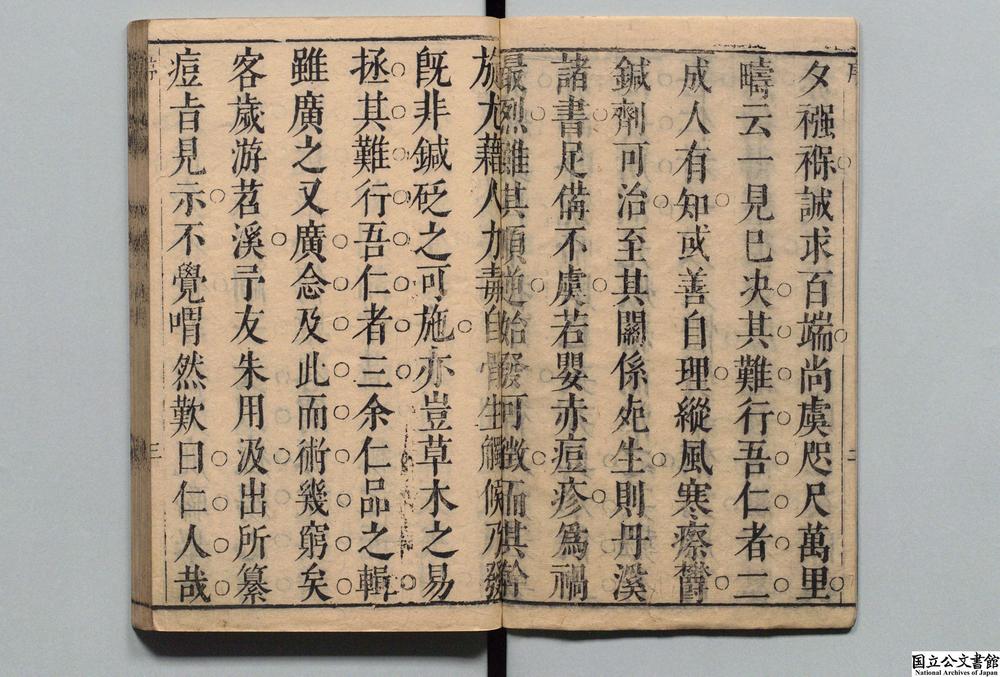 序
夕襁褓誠求百端尚虞咫尺萬里
疇云一見已决其難行吾仁者二
成人有知或善自理縱風寒瘵欝
鍼劑可治至其關係𣦸生則丹溪
諸書足備不虞若嬰赤痘疹爲禍
最烈雖其順逆始發可徵而其
二
於尤藉人力毒自骨生觸候乃發
旣非鍼砭之可施亦豈草木之易
拯其難行吾仁者三余仁品之輯
雖廣之又廣念及此而術幾窮矣
客歲游苕溪予友朱用汲出所纂
痘㫖見示不覺喟然歎曰仁人哉
三
国立公文書館
National Archives of Japan